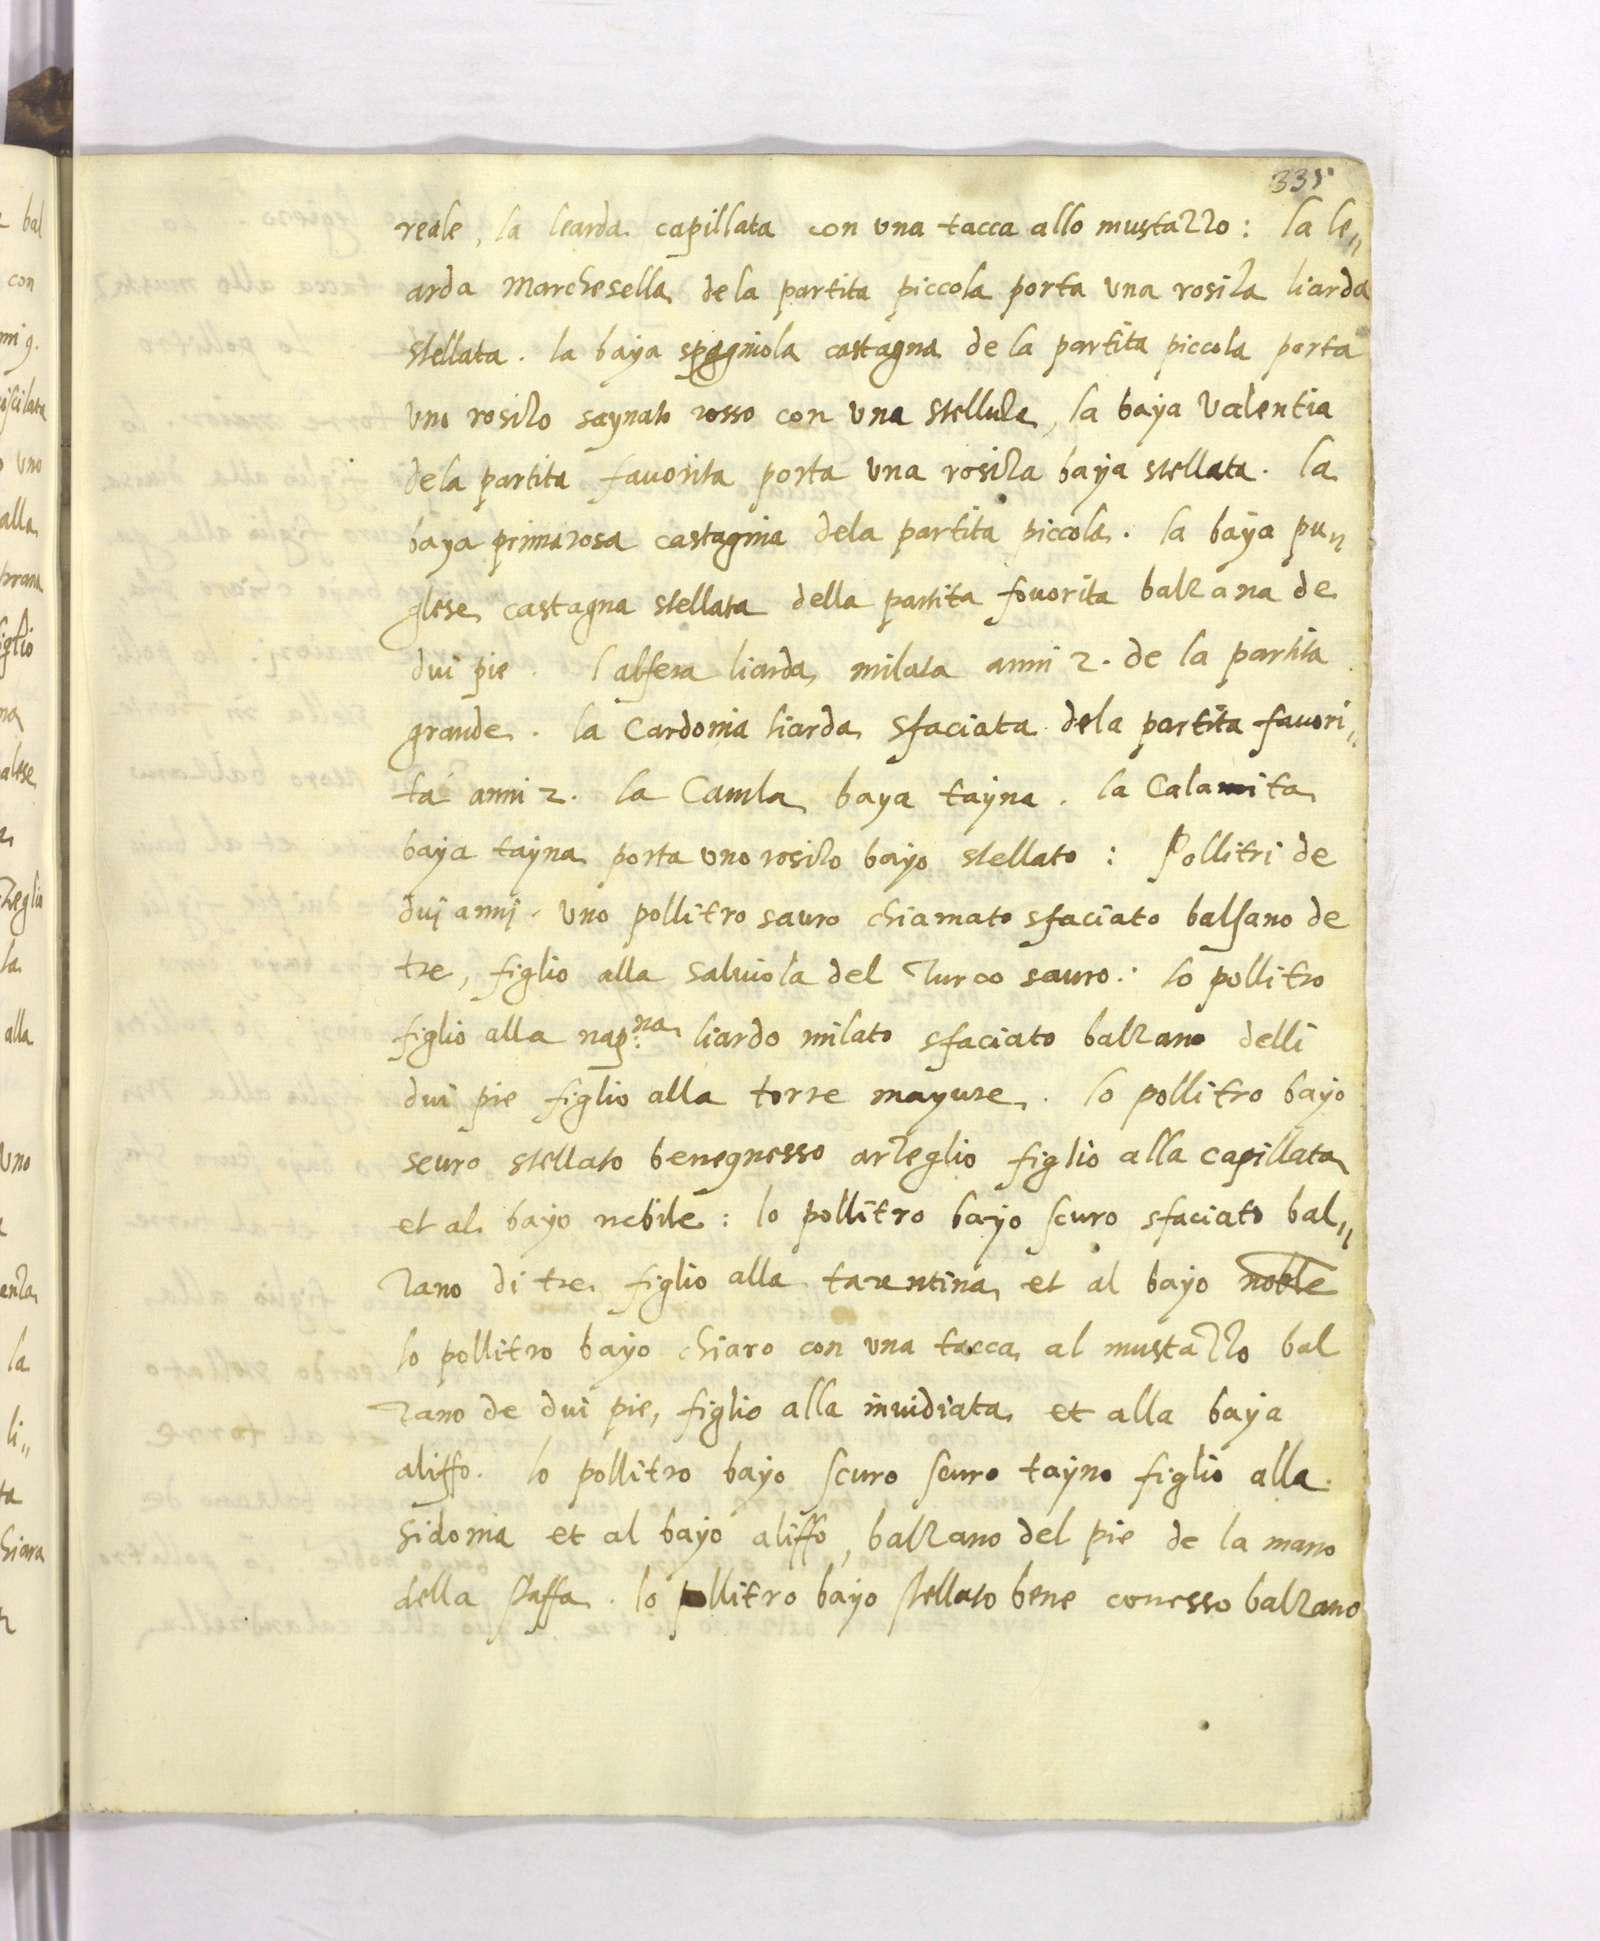 335
reale, la learda capillata con una tacca allo mustazzo: la le„
arda marchesella de la partita piccola porta una rosiza liarda
stellata. la baya spagniola castagna de la partita piccola porta
uno rosizo saynato rosso con una stellula, la baya Valentia
dela partita fauorita porta una rosiza baya stellata. la
baya primarosa castagnia dela partita piccola. la baya pu„
gliese castagna stellata della partita fouorita balzana de
dui pie. l alfera liarda, milata anni 2. de la partita
grande. la Cardonia liarda sfaciata dela partita fauori„
ta anni 2. la baya tayna. la Calamita
baya tayna porta uno rosizo bayo stellato: Pollitri de
duj annj. uno pollitro sauro chiamato sfaciato balsano de
tre, figlio alla saluiola del Turco sauro: lo pollitro
figlio alla nap:na liardo milato sfaciato balzano delli
dui pie figlio alla torre mayure. lo pollitro bayo
scuro stellato benegnesso arteglio figlio alla capillata
et al bayo nobile: lo pollitro bayo scuro sfaciato bal„
zano di tre figlio alla tarentina et al bayo noble
lo pollitro bayo chiaro con una tacca al mustazzo bal
zano de dui pie, figlio alla inuidiata et alla baya
aliffo. lo pollitro bayo scuro scuro tayno figlio alla
hidonia et al bayo aliffo, balzano del pie de la mano
della staffa. lo pollitro bayo stellato bene conesso balzano